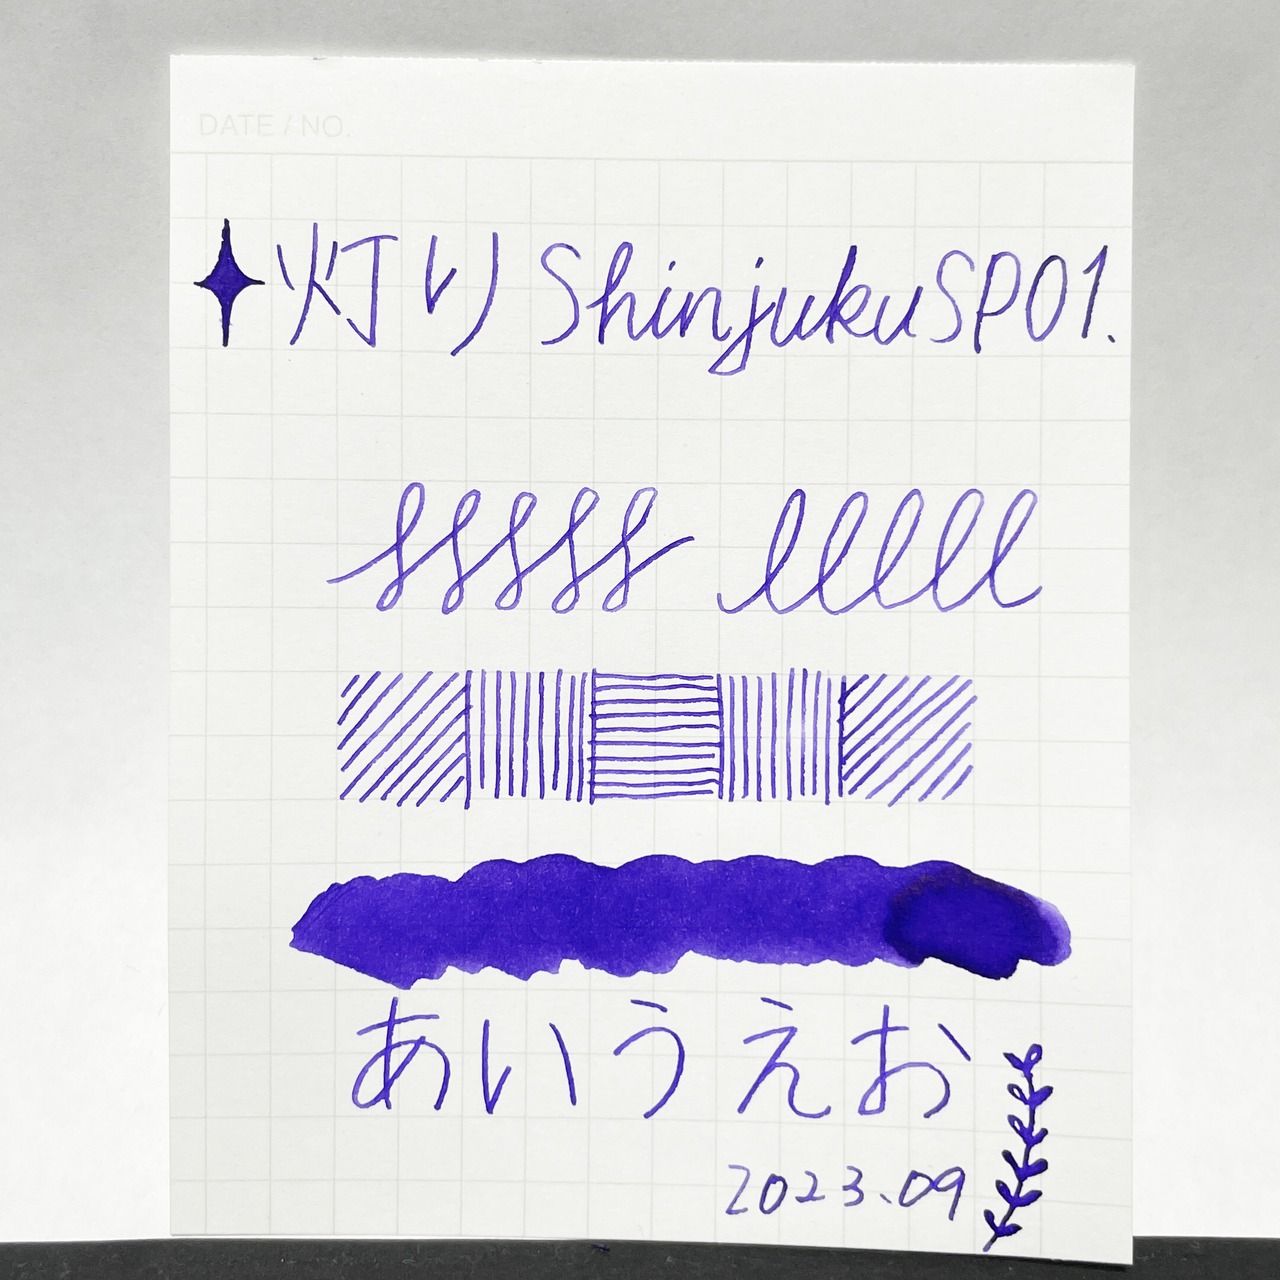 DATE / NO.
灯り ShinjukuSP01.
sssss lllll
あいうえお
2023.09